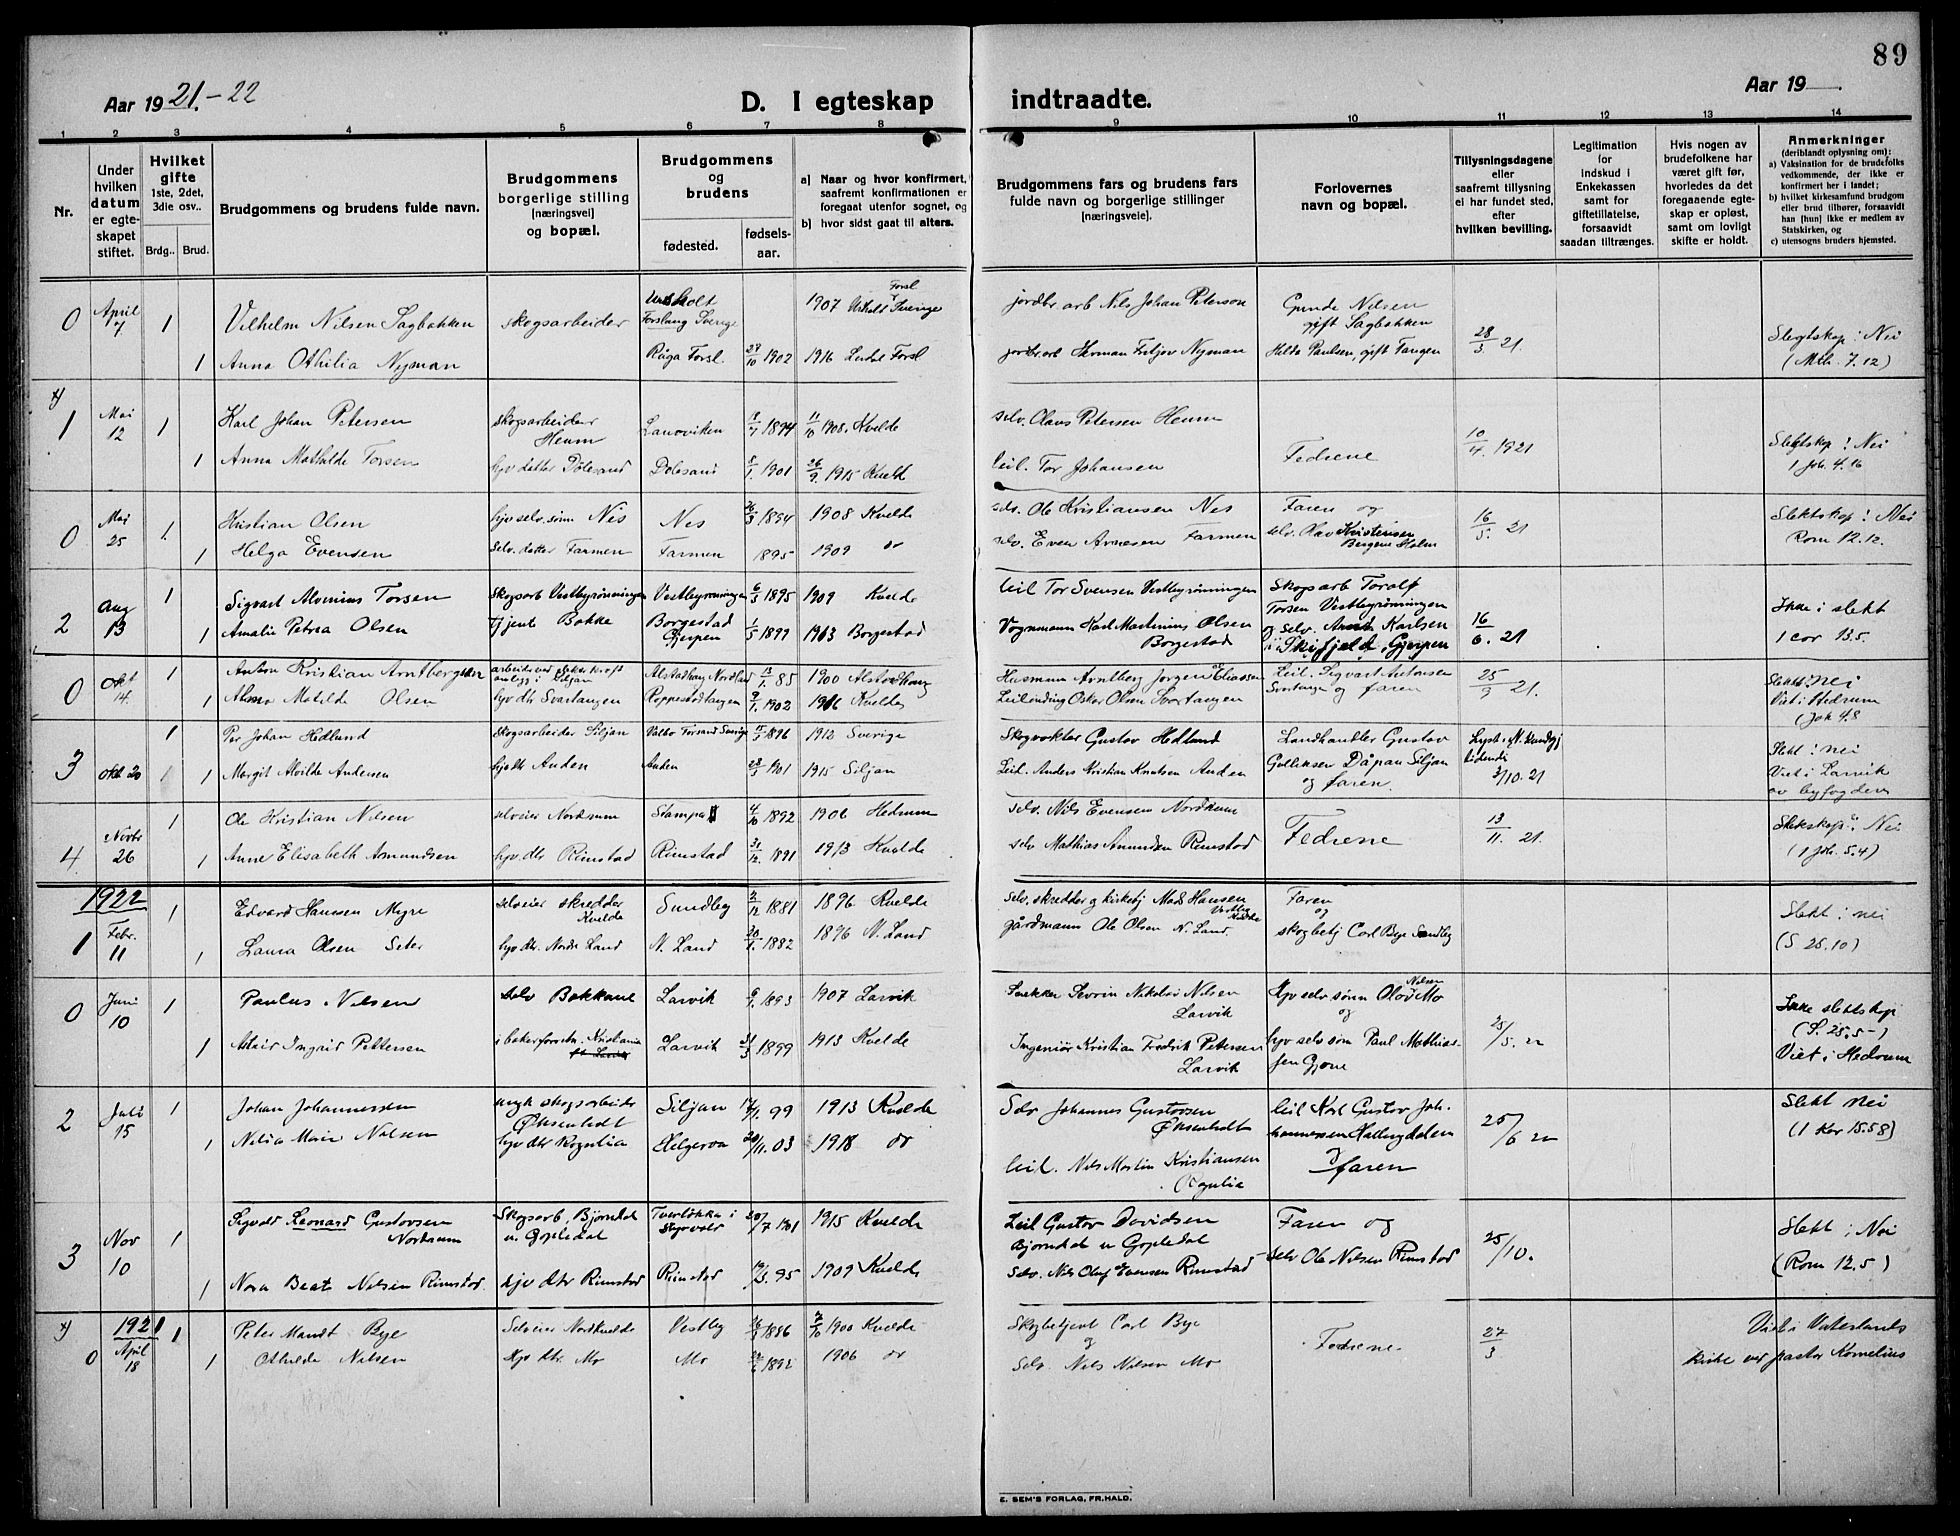 89
Aar 1921.-22
D. I egteskap
indtraadte.
Aar 19
1 2 3 4 5 6 7 8
9 10 11 12 13 14
Nr.
Under hvilken datum er egte-skapet stiftet.
Hvilket gifte 1ste, 2det, 3die osv..
Brdg.. Brud.
Brudgommens og brudens fulde navn.
Brudgommens borgerlige stilling (næringsvei) og bopæl.
Brudgommens og brudens
fødested.
fødsels-aar.
a) Naar og hvor konfirmert, saafremt konfirmationen er foregaat utenfor sognet, og
b) hvor sidst gaat til alters.
Brudgommens fars og brudens fars fulde navn og borgerlige stillinger (næringsveie).
Forlovernes navn og bopæl.
Tillysningsdagene eller saafremt tillysning ei har fundet sted, efter hvilken bevilling.
Legitimation for indskud i Enkekassen samt for giftetillatelse, forsaavidt saadan tiltrænges.
Hvis nogen av brudefolkene har været gift før, hvorledes da det foregaaende egte-skap er opløst, samt om lovligt skifte er holdt.
Anmerkninger
(deriblandt oplysning om):
a) Vaksination for de brudefolks vedkommende, der ikke er konfirmert her i landet;
b) hvilket kirkesamfund brudgom eller brud tilhører, forsaavidt han [hun] ikke er medlem av Statskirken, og
c) utensogns bruders hjemsted.
0 April 7 1 Vilhelm Nilsen Sagbakken skogsarbeider Forslang Sverige 1907 Sverige jordbr. arb Nils Johan Peterson Gunde Nilsen gift Sagbakken 28/3 21. Slegtskap: Nei
1 Anna Othilia Nyman Forsl. 27/10 1902 1916 Forsl jordbr. arb Herman Fritjov Nyman Hilda Paulsen, gift Tangen (Mth. 7.12)
1 Mai 12 1 Karl Johan Petersen skogsarbeider Heum Lanaviken 1894 11/10 1908. Kvelde selv. Claus Petersen Heum Fedrene 10/4. 1921 Slektskap: Nei
1 Anna Mathilde Torsen hjv datter Dølesand Dolesand 8/1 1901 26/9 1915 Kvelde leil. Tor Johansen 1 Joh. 4. 16
0 Mai 25 1. Kristian Olsen hjv selv. sønn Nes Nes 26/3 1894 1908 Kvelde selv. Ole Kristiansen Nes Faren og 16/5. 21 Slektskap: Nei
1 Helga Evensen selv. datter Farmen Farmen 1895 1909 do selv. Even Arnesen Farmen selv. Olav Kristensen Bergene Holm Rom 12.12.
2 Aug 13 1 Sigvart Alvinius Torsen Skogsarb Vestbyrønningen Vestbyrønningen 6/3 1895 1909 Kvelde leil Tor Svensen Vestbyrønningen Skogsarb Toralf Torsen Vestbyrønningen 16/6. 21 Ikke i slekt
1 Amalie Petrea Olsen Tjente Bakke Borgestad Gjerpen 1/5 1899 1913 Borgestad Vognmann Karl Martinius Olsen Borgestad og selv. Karlsen i Gjerpen 1 cor 13.5.
0 Okt 14. 1 Anton Kristian Arntbergsen arbeider ved elektr. kraft anlegg i Siljan Alstadhaug Nordland 13/1. 85 1900 Alstadhaug Husmann Arntberg Jørgen Eliassen Leil. Sigvart Antonsen 25/9 21. Slekt: nei
1 Alma Matilde Olsen hjv dtr Svartangen Poppestadtangen 9/1. 1902 1916 Kvelde Leilending Oskar Olsen Svartangen Svartangen og faren Viet i Hedrum (Joh 4.8
3 Okt 20 1 Per Johan Hedlund skogsarbeider Siljan Forsand Sverige 1896 1912 Sverige Skogvokter Gustav Hedlund Landhandler Gustav Lyst i N. Kundgj. tidende Slekt: nei
1 Margit Alvilde Andersen hjv dtr Auden Auden 1901 1915 Siljan Leil. Anders Kristian Knutsen Auden Gulliksen Dåpan Siljan og faren. 3/10. 21 Viet i Larvik av byfogden
4. Novbr 26 1 Ole Kristian Nilsen selveier Nordrum Stampa 4/10 1892 1906 Hedrum selv. Nils Evensen Nordrum Fedrene 13/11. 21. Slektskap: Nei
1 Anne Elisabeth Amundsen hjv dtr Rimstad Rimstad 31/12. 1891 1913 Kvelde selv Mathias Amundsen Rimstad (1 Joh. 5.4)
1922
1 Febr. 11 1 Edvard Hansen Myre selveier skredder Kvelde Sundby 2/12 1881 1896 Kvelde Selv. skredder og kirketj Mads Hansen Vestby Kvelde Faren og Slekt: nei
1 Laura Olsen Seter hjv dtr. Nordre Land N. Land 20/1. 1882 1896 N. Land gårdmann Ole Olsen N. Land skogbetj Carl Bye Sundby (S 25.10)
0 Juni 10 1 Paulus Nilsen selv Bakkane Larvik 6/9. 1893 1907 Larvik Snekker Severin Nikolai Nilsen Larvik Hjv selv sønn Olav Nilsen Mo og 25/5. 22 Ikke slektskap
1 Ingrid Pettersen i bakerforretn. Kristiania Larvik 21/3 1899 1913 Kvelde Ingeniør Kristian Fredrik Petersen Larvik hjv selv søn Paul Mathiassen Gjone (S. 25.5-) Viet i Hedrum
2 Juli 15 1 Johan Johannessen ungk skogsarbeider Øksenholt Siljan 14/1. 99 1913 Kvelde Selv Johannes Gustavsen Øksenholt leil Karl Gustav Johannessen Hallingdalen 25/6 22 Slekt nei
1 Nilia Marie Nilsen hjv dtr Rognlia Helgeroa 20/11. 03 1918 do leil. Nils Martin Kristiansen Rognlia og faren (1 Kor 15.58)
3 Nov 10 1 Sigvald Leonard Gustavsen Nordrum Skogsarb. Bjørndal u. Gopledal Tverløkka i Slagsvold 20/7 1901 1915 Kvelde Leil Gustav Davidsen Bjørndal u Gopledal Faren og 25/10. Slekt: Nei
1 Nora Beate Nilsen Rimstad. hjv dtr Rimstad Rimstad 19/5. 95 1909 Kvelde Selv. Nils Oluf Evensen Rimstad selv Ole Nilsen Rimstad (Rom 12.5)
1921
0 April 18 1 Peter Mandt Bye Selveier Nordkvelde Vestby 1886 2/10 1900 Kvelde Skogbetjent Carl Bye og Fedrene. 27/3 Viet i Vaterlands
1 Othilde Nilsen Hjv dtr. Mo Mo 1892 1906 do Selv. Nils Nilsen Mo kirke ved pastor Kornelius
E. SEM'S FORLAG, FR.HALD.